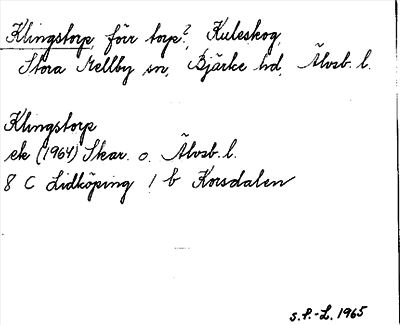 Klingstorp, förr torp?, Kuleskog,
Stora Mellby sn, Bjärke hd, Älvsb. l.
Klingstorp
ek (1964) Skar. o. Älvsb. l.
8 C Lidköping 1 b Korsdalen
S.P.-L. 1965